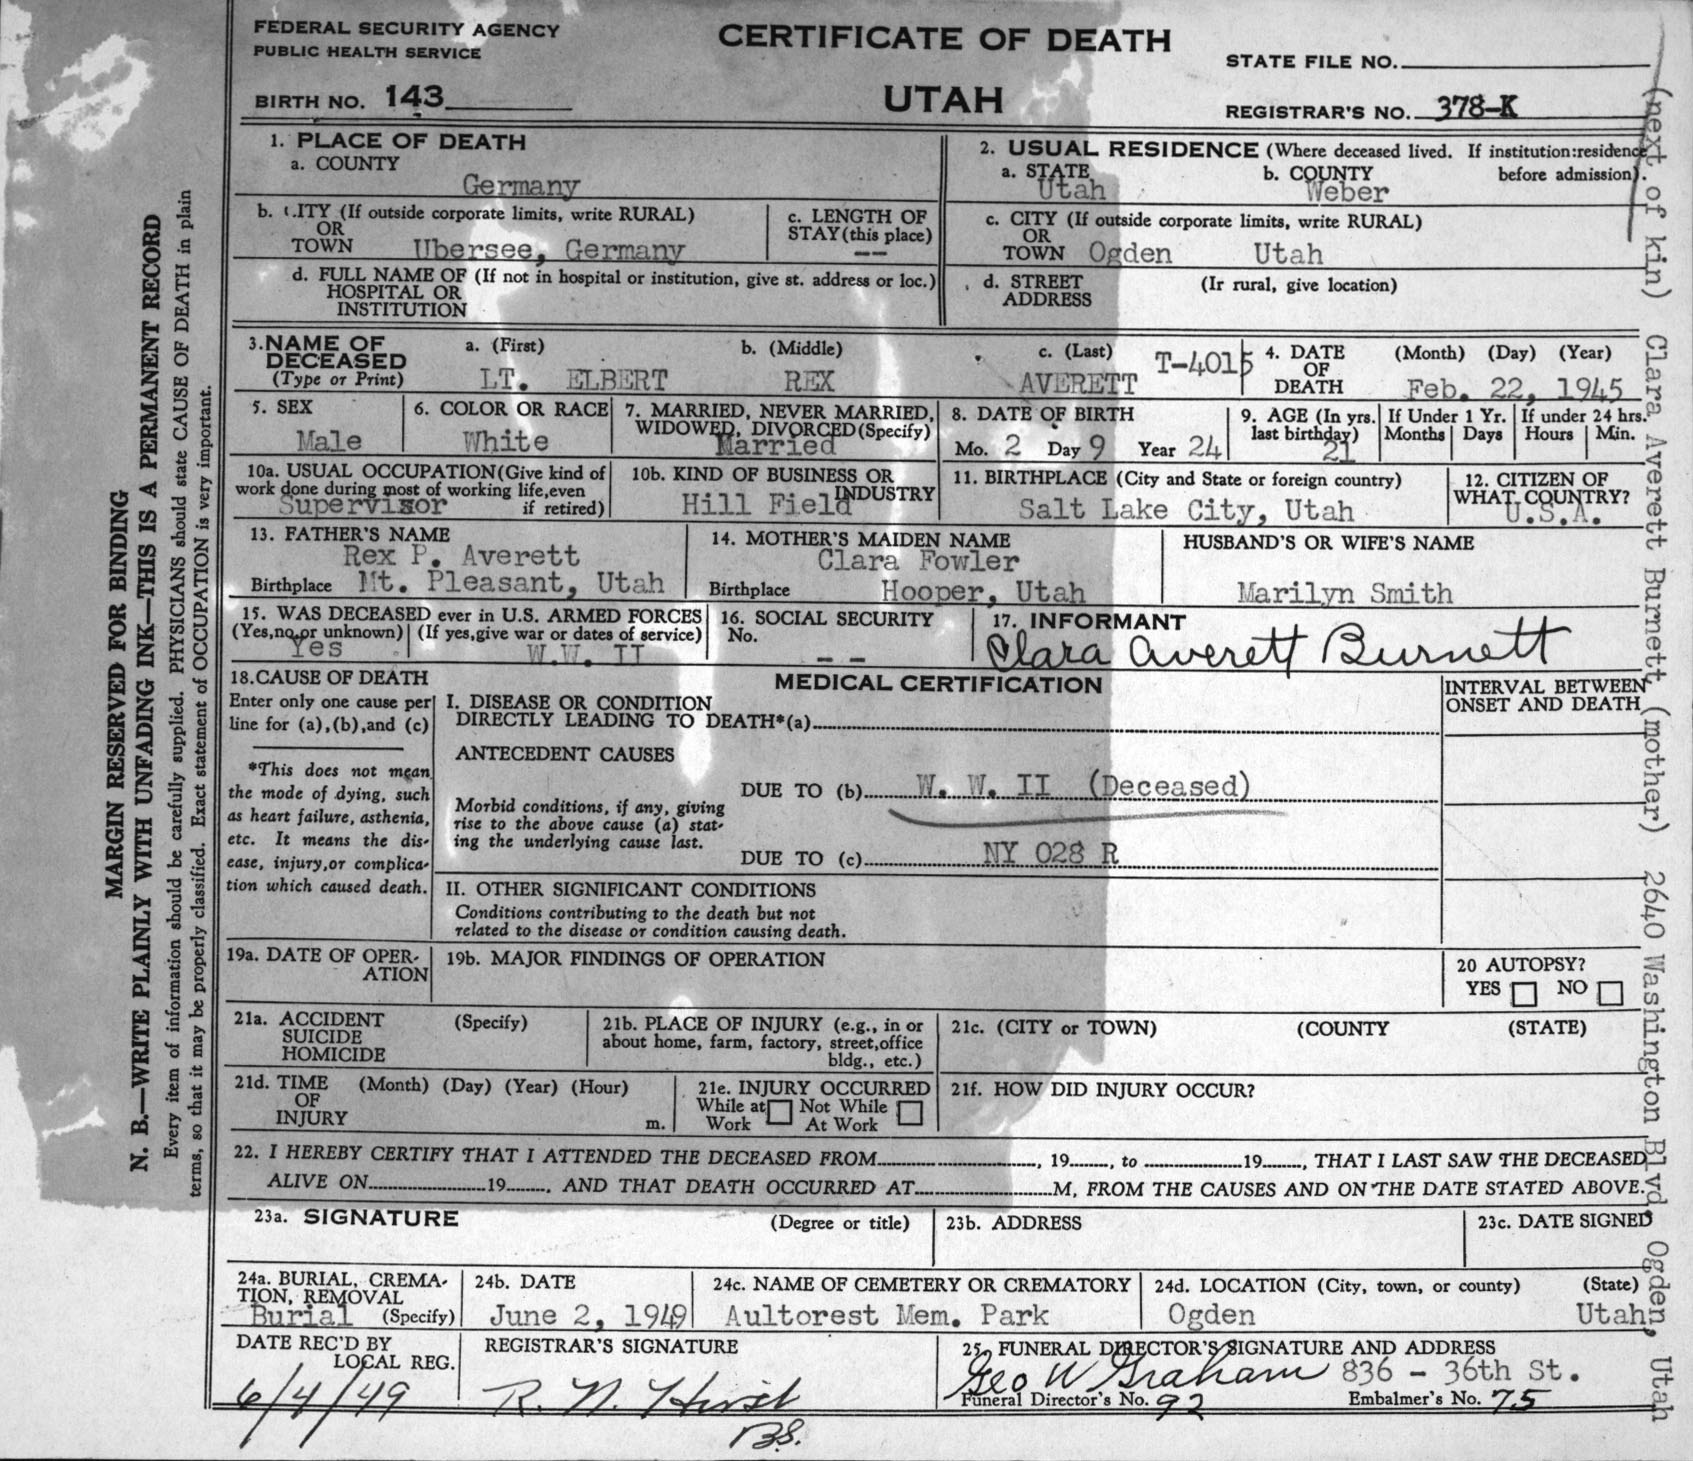 FEDERAL SECURITY AGENCY
PUBLIC HEALTH SERVICE
CERTIFICATE OF DEATH
UTAH
STATE FILE NO.
BIRTH NO. 143
REGISTRAR'S NO. 378-K
1. PLACE OF DEATH
a. COUNTY
Germany
b. CITY (If outside corporate limits, write RURAL)
OR
TOWN Ubersee, Germany
c. LENGTH OF
STAY (this place)
--
d. FULL NAME OF (If not in hospital or institution, give st. address or loc.)
HOSPITAL OR
INSTITUTION
2. USUAL RESIDENCE (Where deceased lived. If institution:residence
before admission).
a. STATE
Utah
b. COUNTY
Weber
c. CITY (If outside corporate limits, write RURAL)
OR
TOWN Ogden Utah
d. STREET (Ir rural, give location)
ADDRESS
3. NAME OF
DECEASED
(Type or Print)
a. (First) b. (Middle) c. (Last)
LT. ELBERT REX AVERETT
T-4015
4. DATE
OF
DEATH
(Month) (Day) (Year)
Feb. 22, 1945
5. SEX
Male
6. COLOR OR RACE
White
7. MARRIED, NEVER MARRIED,
WIDOWED, DIVORCED (Specify)
Married
8. DATE OF BIRTH
Mo. 2 Day 9 Year 24
9. AGE (In yrs.
last birthday)
21
If Under 1 Yr.
Months Days
If under 24 hrs.
Hours Min.
10a. USUAL OCCUPATION (Give kind of
work done during most of working life,even
if retired)
Supervisor
10b. KIND OF BUSINESS OR
INDUSTRY
Hill Field
11. BIRTHPLACE (City and State or foreign country)
Salt Lake City, Utah
12. CITIZEN OF
WHAT COUNTRY?
U.S.A.
13. FATHER'S NAME
Rex P. Averett
Birthplace Mt. Pleasant, Utah
14. MOTHER'S MAIDEN NAME
Clara Fowler
Birthplace Hooper, Utah
HUSBAND'S OR WIFE'S NAME
Marilyn Smith
15. WAS DECEASED ever in U.S. ARMED FORCES
(Yes,no,or unknown) (If yes,give war or dates of service)
Yes W.W. II
16. SOCIAL SECURITY
No.
--
17. INFORMANT
Clara Averett Burnett
18. CAUSE OF DEATH
Enter only one cause per
line for (a),(b),and (c)
*This does not mean
the mode of dying, such
as heart failure, asthenia,
etc. It means the dis-
ease, injury,or complica-
tion which caused death.
MEDICAL CERTIFICATION
I. DISEASE OR CONDITION
DIRECTLY LEADING TO DEATH*(a)
ANTECEDENT CAUSES
DUE TO (b) W. W. II (Deceased)
Morbid conditions, if any, giving
rise to the above cause (a) stat-
ing the underlying cause last.
DUE TO (c) NY 028 R
II. OTHER SIGNIFICANT CONDITIONS
Conditions contributing to the death but not
related to the disease or condition causing death.
INTERVAL BETWEEN
ONSET AND DEATH
19a. DATE OF OPER-
ATION
19b. MAJOR FINDINGS OF OPERATION
20 AUTOPSY?
YES NO
21a. ACCIDENT (Specify)
SUICIDE
HOMICIDE
21b. PLACE OF INJURY (e.g., in or
about home, farm, factory, street,office
bldg., etc.)
21c. (CITY or TOWN) (COUNTY (STATE)
21d. TIME (Month) (Day) (Year) (Hour)
OF
INJURY m.
21e. INJURY OCCURRED
While at Not While
Work At Work
21f. HOW DID INJURY OCCUR?
22. I HEREBY CERTIFY THAT I ATTENDED THE DECEASED FROM , 19 , to 19 , THAT I LAST SAW THE DECEASED
ALIVE ON 19 , AND THAT DEATH OCCURRED AT M, FROM THE CAUSES AND ON THE DATE STATED ABOVE.
23a. SIGNATURE (Degree or title)
23b. ADDRESS
23c. DATE SIGNED
24a. BURIAL, CREMA-
TION, REMOVAL
Burial (Specify)
24b. DATE
June 2, 1949
24c. NAME OF CEMETERY OR CREMATORY
Aultorest Mem. Park
24d. LOCATION (City, town, or county) (State)
Ogden Utah
DATE REC'D BY
LOCAL REG.
6/4/49
REGISTRAR'S SIGNATURE
R. N. Hirst
B.S.
25. FUNERAL DIRECTOR'S SIGNATURE AND ADDRESS
Geo W Graham 836 - 36th St.
Funeral Director's No. 92 Embalmer's No. 75
MARGIN RESERVED FOR BINDING
N. B.—WRITE PLAINLY WITH UNFADING INK—THIS IS A PERMANENT RECORD
Every item of information should be carefully supplied. PHYSICIANS should state CAUSE OF DEATH in plain
terms, so that it may be properly classified. Exact statement of OCCUPATION is very important.
(next of kin) Clara Averett Burnett (mother) 2640 Washington Blvd. Ogden, Utah